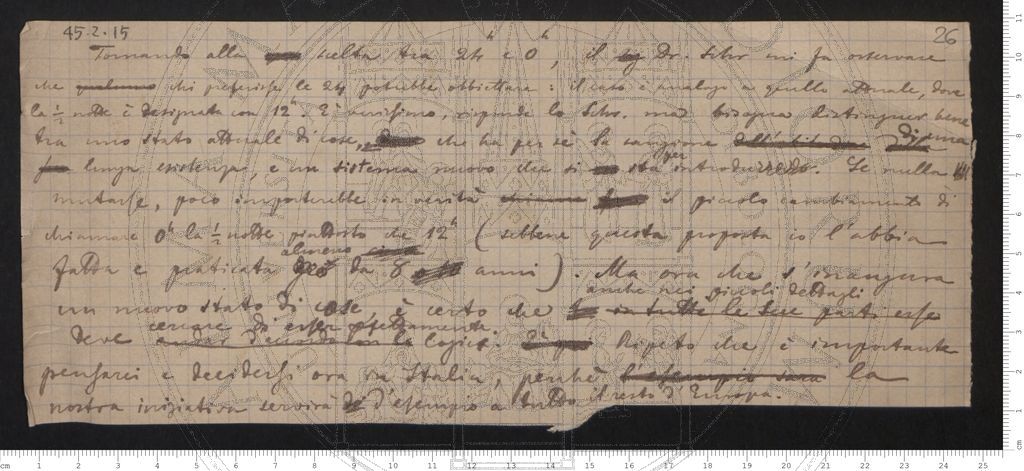 45.2.15
26
Tornando alla scelta tra 24h e 0h, il Dr. Schr mi fa osservare
che chi preferisse le 24 potrebbe obbiettare: il caso è analogo a quello attuale, dove
la ½ notte è designata con 12h. È verissimo, risponde lo Schr. ma bisogna distinguer bene
tra uno stato attuale di cose, che ha per sè la sanzione di una
lunga esistenza, e un sistema nuovo che si sta per introducendo. Se nulla
mutasse, poco importerebbe in verità il piccolo cambiamento di
chiamare 0h la ½ notte piuttosto che 12h (sebbene questa proposta io l'abbia
fatta e praticata almeno da 8 anni). Ma ora che s'inaugura
un nuovo stato di cose, è certo che anche nei piccoli dettagli in tutte le sue parti esso
deve cercare di esser perfettamente logico. Ripeto che è importante
pensarci e decidersi ora in Italia, perchè l'esempio sarà la
nostra iniziativa servirà d'esempio a tutto il resto d'Europa.